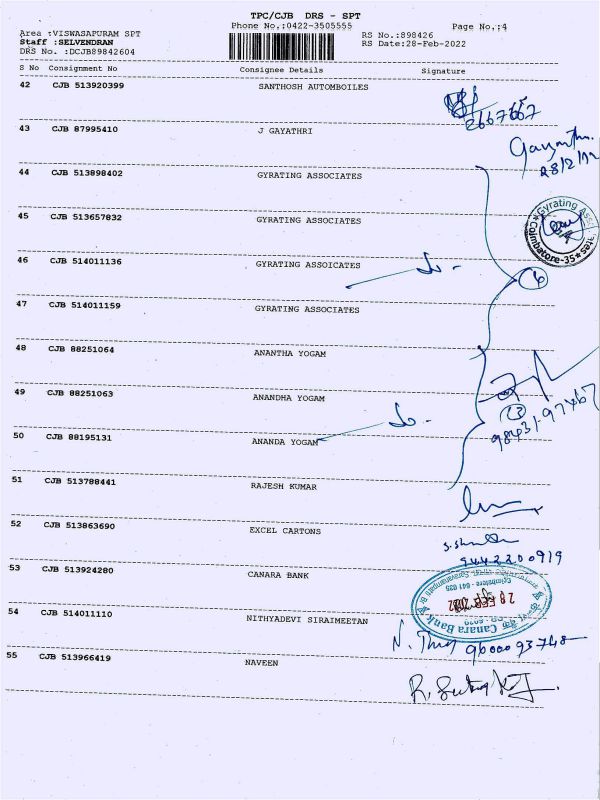 TPC/CJB DRS - SPT
Area :VISWASAPURAM SPT Phone No.:0422-3505555 Page No.:4
Staff :SELVENDRAN RS No.:898426
DRS No. :DCJB89842604 RS Date:28-Feb-2022
S No Consignment No Consignee Details Signature
42 CJB 513920399 SANTHOSH AUTOMBOILES
2667667
43 CJB 87995410 J GAYATHRI
Gayathri
28/2/22
44 CJB 513898402 GYRATING ASSOCIATES
45 CJB 513657832 GYRATING ASSOCIATES
Gyrating
Coimbatore-35
46 CJB 514011136 GYRATING ASSOICATES
6
47 CJB 514011159 GYRATING ASSOCIATES
48 CJB 88251064 ANANTHA YOGAM
49 CJB 88251063 ANANDHA YOGAM
3
50 CJB 88195131 ANANDA YOGAM
51 CJB 513788441 RAJESH KUMAR
52 CJB 513863690 EXCEL CARTONS
9442200919
53 CJB 513924280 CANARA BANK
Coimbatore - 641 035
Canara Bank
54 CJB 514011110 NITHYADEVI SIRAIMEETAN
9600093748
55 CJB 513966419 NAVEEN